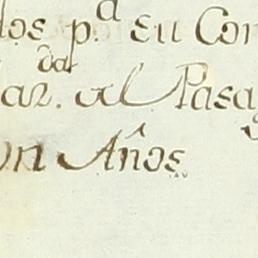 los p.a su Con
dar
ar. al Pasa
on Años